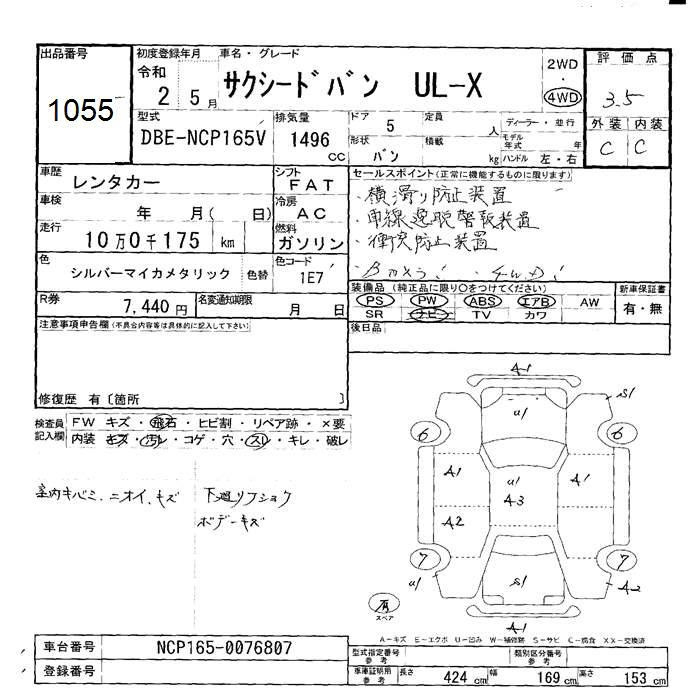 出品番号
1055
初度登録年月
令和 2 5月
車名・グレード
サクシードバン UL-X
2WD
・
4WD
評価点
3.5
外装 内装
C C
型式
DBE-NCP165V
排気量
1496 CC
ドア 5
形状 バン
定員 人
積載 kg
ディーラー・並行
モデル年式 年
ハンドル 左・右
車歴 レンタカー
シフト FAT
車検 年 月( 日)
冷房 AC
走行 10万0千175 km
燃料 ガソリン
色 シルバーマイカメタリック 色替
色コード 1E7
R券 7,440円
名変通知期限 月 日
セールスポイント(正常に機能するものに限ります)
・横滑り防止装置
・車線逸脱警報装置
・衝突防止装置
装備品 (純正品に限り○をつけてください)
新車保証書
PS PW ABS エアB AW
有・無
SR ナビ TV カワ
後日品
注意事項申告欄(不具合内容等は具体的に記入して下さい)
修復歴 有〔箇所 〕
検査員記入欄
FW キズ・飛石・ヒビ割・リペア跡・×要
内装 キズ・汚レ・コゲ・穴・スレ・キレ・破レ
室内キバミ、ニオイ、キズ
下廻リフショク
ボデーキズ
A1
S1
U1
6 6
A1 U1 A1
A3
A2
7 7
U1 S1 A2
A1
有
スペア
A-キズ E-エクボ U-凹み W-補修跡 S-サビ C-腐食 XX-交換済
車台番号 NCP165-0076807
登録番号
型式指定番号 参考
類別区分番号 参考
車庫証明用 参考
長さ 424 cm
幅 169 cm
高さ 153 cm